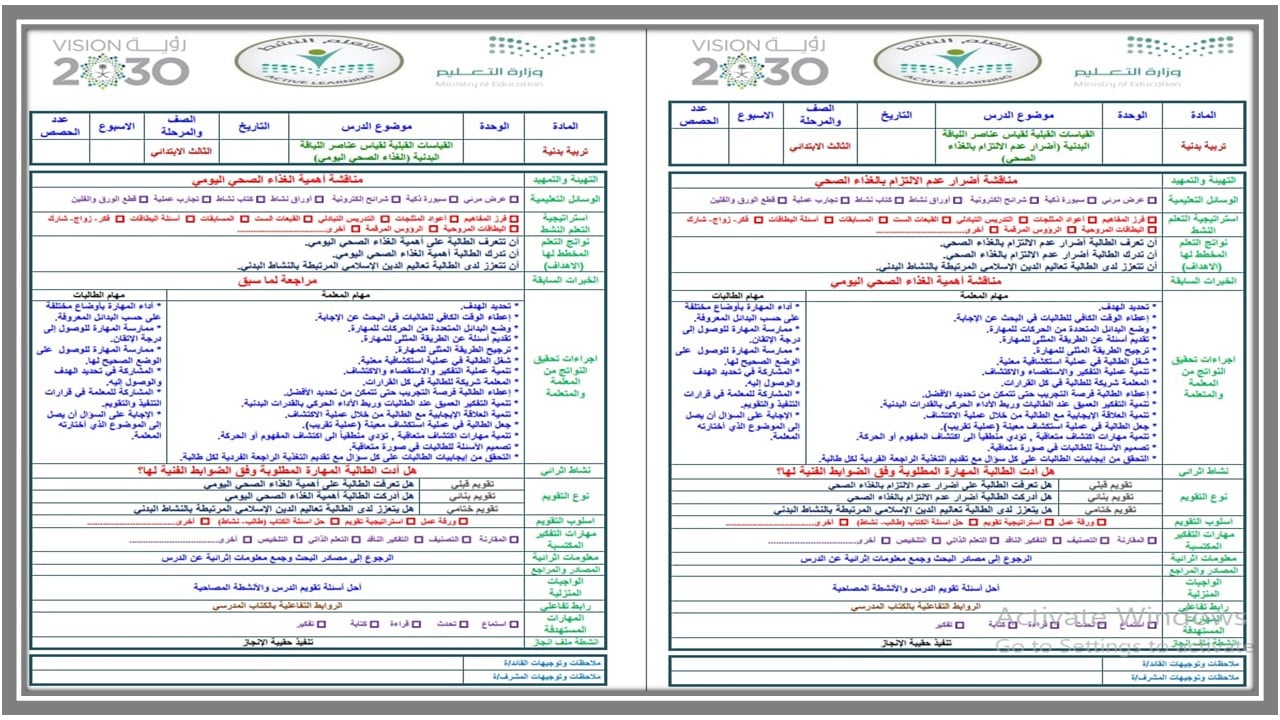 رؤيـــة VISION
2030
التعلم النشط
ACTIVE LEARNING
وزارة التعـــليم
Ministry of Education
المادة الوحدة موضوع الدرس التاريخ الصف والمرحلة الاسبوع عدد الحصص
تربية بدنية القياسات القبلية لقياس عناصر اللياقة البدنية (أضرار عدم الالتزام بالغذاء الصحي) الثالث الابتدائي
التهيئة والتمهيد مناقشة أضرار عدم الالتزام بالغذاء الصحي
الوسائل التعليمية عرض مرئي سبورة ذكية شرائح إلكترونية أوراق نشاط كتاب نشاط تجارب عملية قطع الورق والفلين
استراتيجية التعلم النشط فرز المفاهيم أعواد المثلجات التدريس التبادلي القبعات الست المسابقات أسئلة البطاقات فكر- زواج- شارك
البطاقات المروحية الرؤوس المرقمة أخرى..............................
نواتج التعلم المخطط لها (الاهداف)
أن تعرف الطالبة أضرار عدم الالتزام بالغذاء الصحي.
أن تدرك الطالبة أضرار عدم الالتزام بالغذاء الصحي.
أن تتعزز لدى الطالبة تعاليم الدين الإسلامي المرتبطة بالنشاط البدني.
الخبرات السابقة مناقشة أهمية الغذاء الصحي اليومي
اجراءات تحقيق النواتج من المعلمة والمتعلمة
مهام المعلمة
* تحديد الهدف.
* إعطاء الوقت الكافي للطالبات في البحث عن الإجابة.
* وضع البدائل المتعددة من الحركات للمهارة.
* تقديم أسئلة عن الطريقة المثلى للمهارة.
* ترجيح الطريقة المثلى للمهارة.
* شغل الطالبة في عملية استكشافية معنية.
* تنمية عملية التفكير والاستقصاء والاكتشاف.
* المعلمة شريكة للطالبة في كل القرارات.
* إعطاء الطالبة فرصة التجريب حتى تتمكن من تحديد الأفضل.
* تنمية التفكير العميق عند الطالبات وربط الأداء الحركي بالقدرات البدنية.
* تنمية العلاقة الإيجابية مع الطالبة من خلال عملية الاكتشاف.
* جعل الطالبة في عملية استكشاف معينة (عملية تقريب).
* تنمية مهارات اكتشاف متعاقبة , تؤدي منطقياً الى اكتشاف المفهوم أو الحركة.
* تصميم الأسئلة للطالبات في صورة متعاقبة.
* التحقق من إيجابيات الطالبات على كل سؤال مع تقديم التغذية الراجعة الفردية لكل طالبة.
مهام الطالبات
* أداء المهارة بأوضاع مختلفة
على حسب البدائل المعروفة.
* ممارسة المهارة للوصول إلى
درجة الاتقان.
* ممارسة المهارة للوصول على
الوضع الصحيح لها.
* المشاركة في تحديد الهدف
والوصول إليه.
* المشاركة للمعلمة في قرارات
التنفيذ والتقويم.
* الإجابة على السؤال أن يصل
إلى الموضوع الذي أختارته
المعلمة.
نشاط اثرائي هل أدت الطالبة المهارة المطلوبة وفق الضوابط الفنية لها؟
نوع التقويم
تقويم قبلي هل تعرفت الطالبة على أضرار عدم الالتزام بالغذاء الصحي
تقويم بنائي هل أدركت الطالبة أضرار عدم الالتزام بالغذاء الصحي
تقويم ختامي هل يتعزز لدى الطالبة تعاليم الدين الإسلامي المرتبطة بالنشاط البدني
اسلوب التقويم ورقة عمل استراتيجية تقويم حل اسئلة الكتاب (طالب- نشاط) أخرى..............................
مهارات التفكير المكتسبة المقارنة التصنيف التفكير الناقد التعلم الذاتي التلخيص أخرى..............................
معلومات اثرائية الرجوع إلى مصادر البحث وجمع معلومات إثرائية عن الدرس
المصادر والمراجع
الواجبات المنزلية أحل أسئلة تقويم الدرس والأنشطة المصاحبة
رابط تفاعلي الروابط التفاعلية بالكتاب المدرسي
المهارات المستهدفة استماع تحدث قراءة كتابة تفكير
انشطة ملف انجاز تنفيذ حقيبة الانجاز
ملاحظات وتوجيهات القائد/ة
ملاحظات وتوجيهات المشرف/ة
Activate Windows
Go to Settings to activate
رؤيـــة VISION
2030
التعلم النشط
ACTIVE LEARNING
وزارة التعـــليم
Ministry of Education
المادة الوحدة موضوع الدرس التاريخ الصف والمرحلة الاسبوع عدد الحصص
تربية بدنية القياسات القبلية لقياس عناصر اللياقة البدنية (الغذاء الصحي اليومي) الثالث الابتدائي
التهيئة والتمهيد مناقشة أهمية الغذاء الصحي اليومي
الوسائل التعليمية عرض مرئي سبورة ذكية شرائح إلكترونية أوراق نشاط كتاب نشاط تجارب عملية قطع الورق والفلين
استراتيجية التعلم النشط فرز المفاهيم أعواد المثلجات التدريس التبادلي القبعات الست المسابقات أسئلة البطاقات فكر- زواج- شارك
البطاقات المروحية الرؤوس المرقمة أخرى..............................
نواتج التعلم المخطط لها (الاهداف)
أن تتعرف الطالبة على أهمية الغذاء الصحي اليومي.
أن تدرك الطالبة أهمية الغذاء الصحي اليومي.
أن تتعزز لدى الطالبة تعاليم الدين الإسلامي المرتبطة بالنشاط البدني.
الخبرات السابقة مراجعة لما سبق
اجراءات تحقيق النواتج من المعلمة والمتعلمة
مهام المعلمة
* تحديد الهدف.
* إعطاء الوقت الكافي للطالبات في البحث عن الإجابة.
* وضع البدائل المتعددة من الحركات للمهارة.
* تقديم أسئلة عن الطريقة المثلى للمهارة.
* ترجيح الطريقة المثلى للمهارة.
* شغل الطالبة في عملية استكشافية معنية.
* تنمية عملية التفكير والاستقصاء والاكتشاف.
* المعلمة شريكة للطالبة في كل القرارات.
* إعطاء الطالبة فرصة التجريب حتى تتمكن من تحديد الأفضل.
* تنمية التفكير العميق عند الطالبات وربط الأداء الحركي بالقدرات البدنية.
* تنمية العلاقة الإيجابية مع الطالبة من خلال عملية الاكتشاف.
* جعل الطالبة في عملية استكشاف معينة (عملية تقريب).
* تنمية مهارات اكتشاف متعاقبة , تؤدي منطقياً الى اكتشاف المفهوم أو الحركة.
* تصميم الأسئلة للطالبات في صورة متعاقبة.
* التحقق من إيجابيات الطالبات على كل سؤال مع تقديم التغذية الراجعة الفردية لكل طالبة.
مهام الطالبات
* أداء المهارة بأوضاع مختلفة
على حسب البدائل المعروفة.
* ممارسة المهارة للوصول إلى
درجة الاتقان.
* ممارسة المهارة للوصول على
الوضع الصحيح لها.
* المشاركة في تحديد الهدف
والوصول إليه.
* المشاركة للمعلمة في قرارات
التنفيذ والتقويم.
* الإجابة على السؤال أن يصل
إلى الموضوع الذي أختارته
المعلمة.
نشاط اثرائي هل أدت الطالبة المهارة المطلوبة وفق الضوابط الفنية لها؟
نوع التقويم
تقويم قبلي هل تعرفت الطالبة على أهمية الغذاء الصحي اليومي
تقويم بنائي هل أدركت الطالبة أهمية الغذاء الصحي اليومي
تقويم ختامي هل يتعزز لدى الطالبة تعاليم الدين الإسلامي المرتبطة بالنشاط البدني
اسلوب التقويم ورقة عمل استراتيجية تقويم حل اسئلة الكتاب (طالب- نشاط) أخرى..............................
مهارات التفكير المكتسبة المقارنة التصنيف التفكير الناقد التعلم الذاتي التلخيص أخرى..............................
معلومات اثرائية الرجوع إلى مصادر البحث وجمع معلومات إثرائية عن الدرس
المصادر والمراجع
الواجبات المنزلية أحل أسئلة تقويم الدرس والأنشطة المصاحبة
رابط تفاعلي الروابط التفاعلية بالكتاب المدرسي
المهارات المستهدفة استماع تحدث قراءة كتابة تفكير
انشطة ملف انجاز تنفيذ حقيبة الانجاز
ملاحظات وتوجيهات القائد/ة
ملاحظات وتوجيهات المشرف/ة